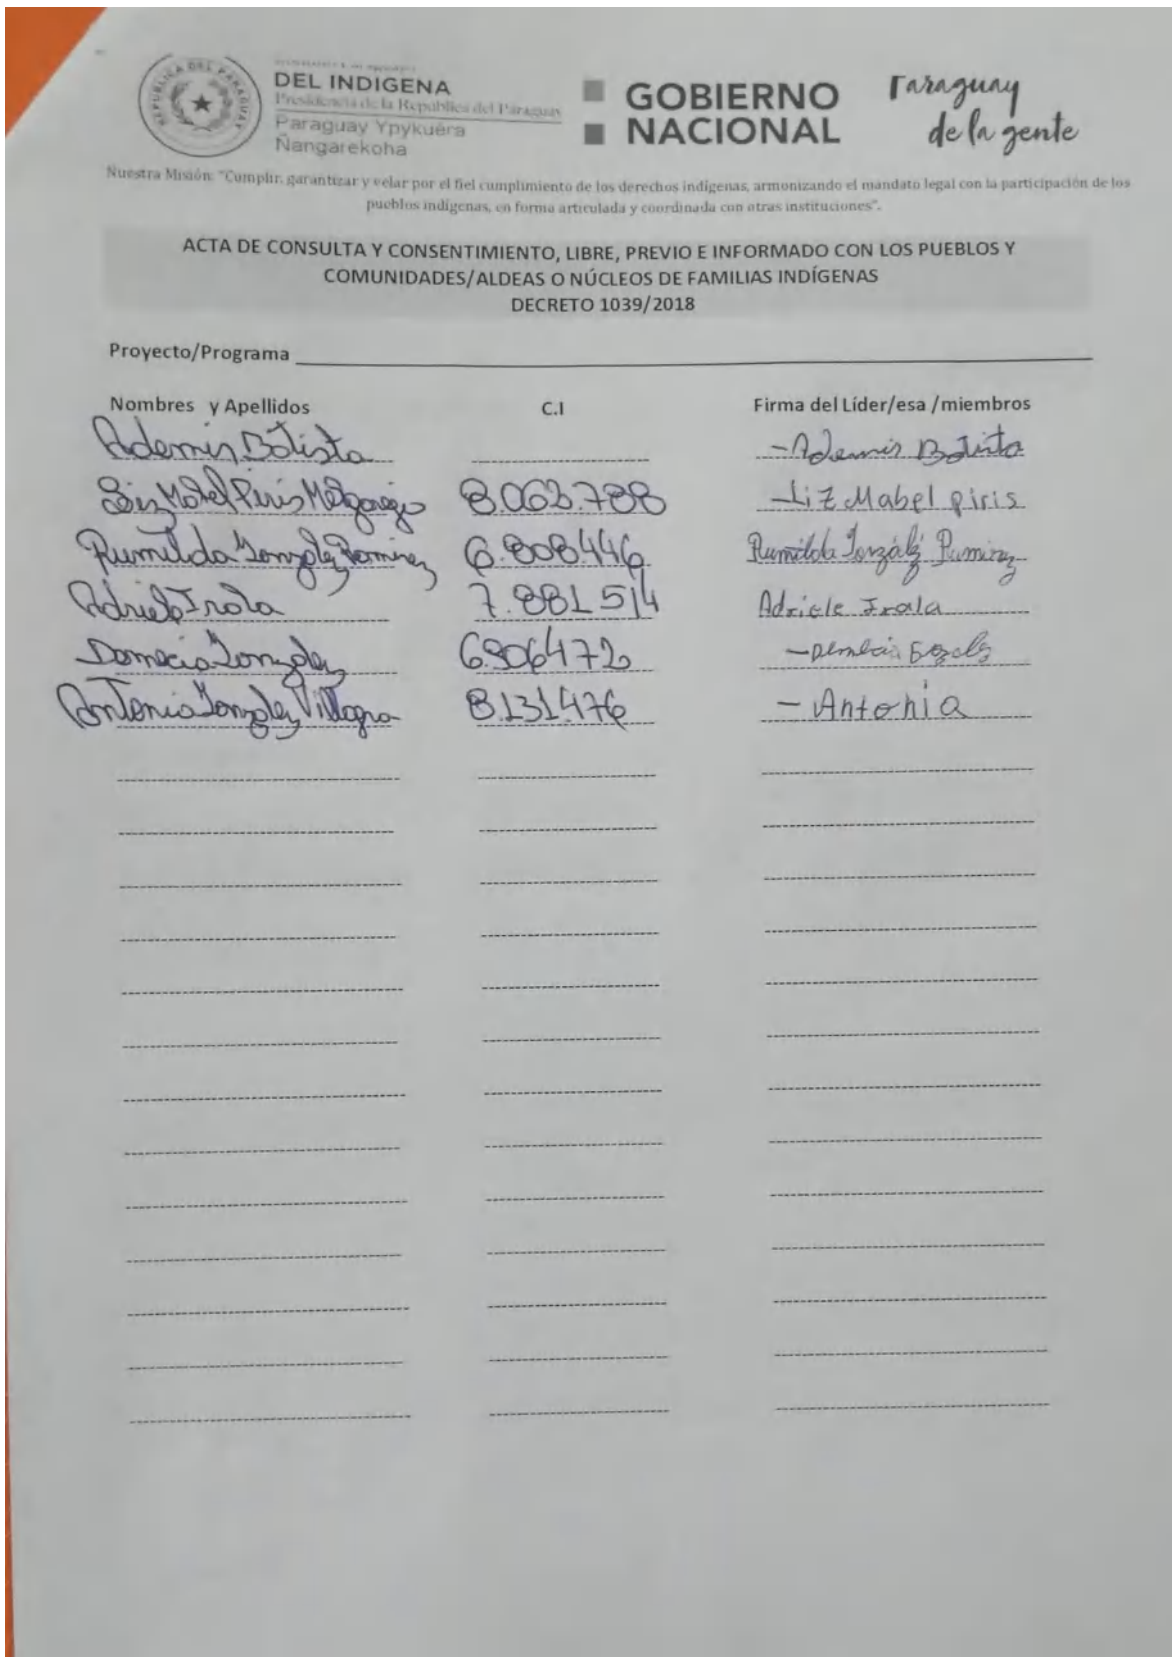 REPUBLICA DEL PARAGUAY
DEL INDIGENA
Presidencia de la República del Paraguay
Paraguay Ypykuéra
Ñangarekoha
GOBIERNO
NACIONAL
Paraguay
de la gente
Nuestra Misión: "Cumplir, garantizar y velar por el fiel cumplimiento de los derechos indígenas, armonizando el mandato legal con la participación de los
pueblos indígenas, en forma articulada y coordinada con otras instituciones".
ACTA DE CONSULTA Y CONSENTIMIENTO, LIBRE, PREVIO E INFORMADO CON LOS PUEBLOS Y
COMUNIDADES/ALDEAS O NÚCLEOS DE FAMILIAS INDÍGENAS
DECRETO 1039/2018
Proyecto/Programa
Nombres y Apellidos C.I Firma del Líder/esa /miembros
Ademir Batista - Ademir Batista
Liz Mabel Piris Melgarejo 8.063.788 - Liz Mabel piris
Rumilda Gonzalez Ramirez 6.808.446 Rumilda Gonzalez Ramirez
Irala 7.881514 Irala
Gonzalez 6.906472
Antonia Gonzalez Villagra 8.131.476 - Antonia